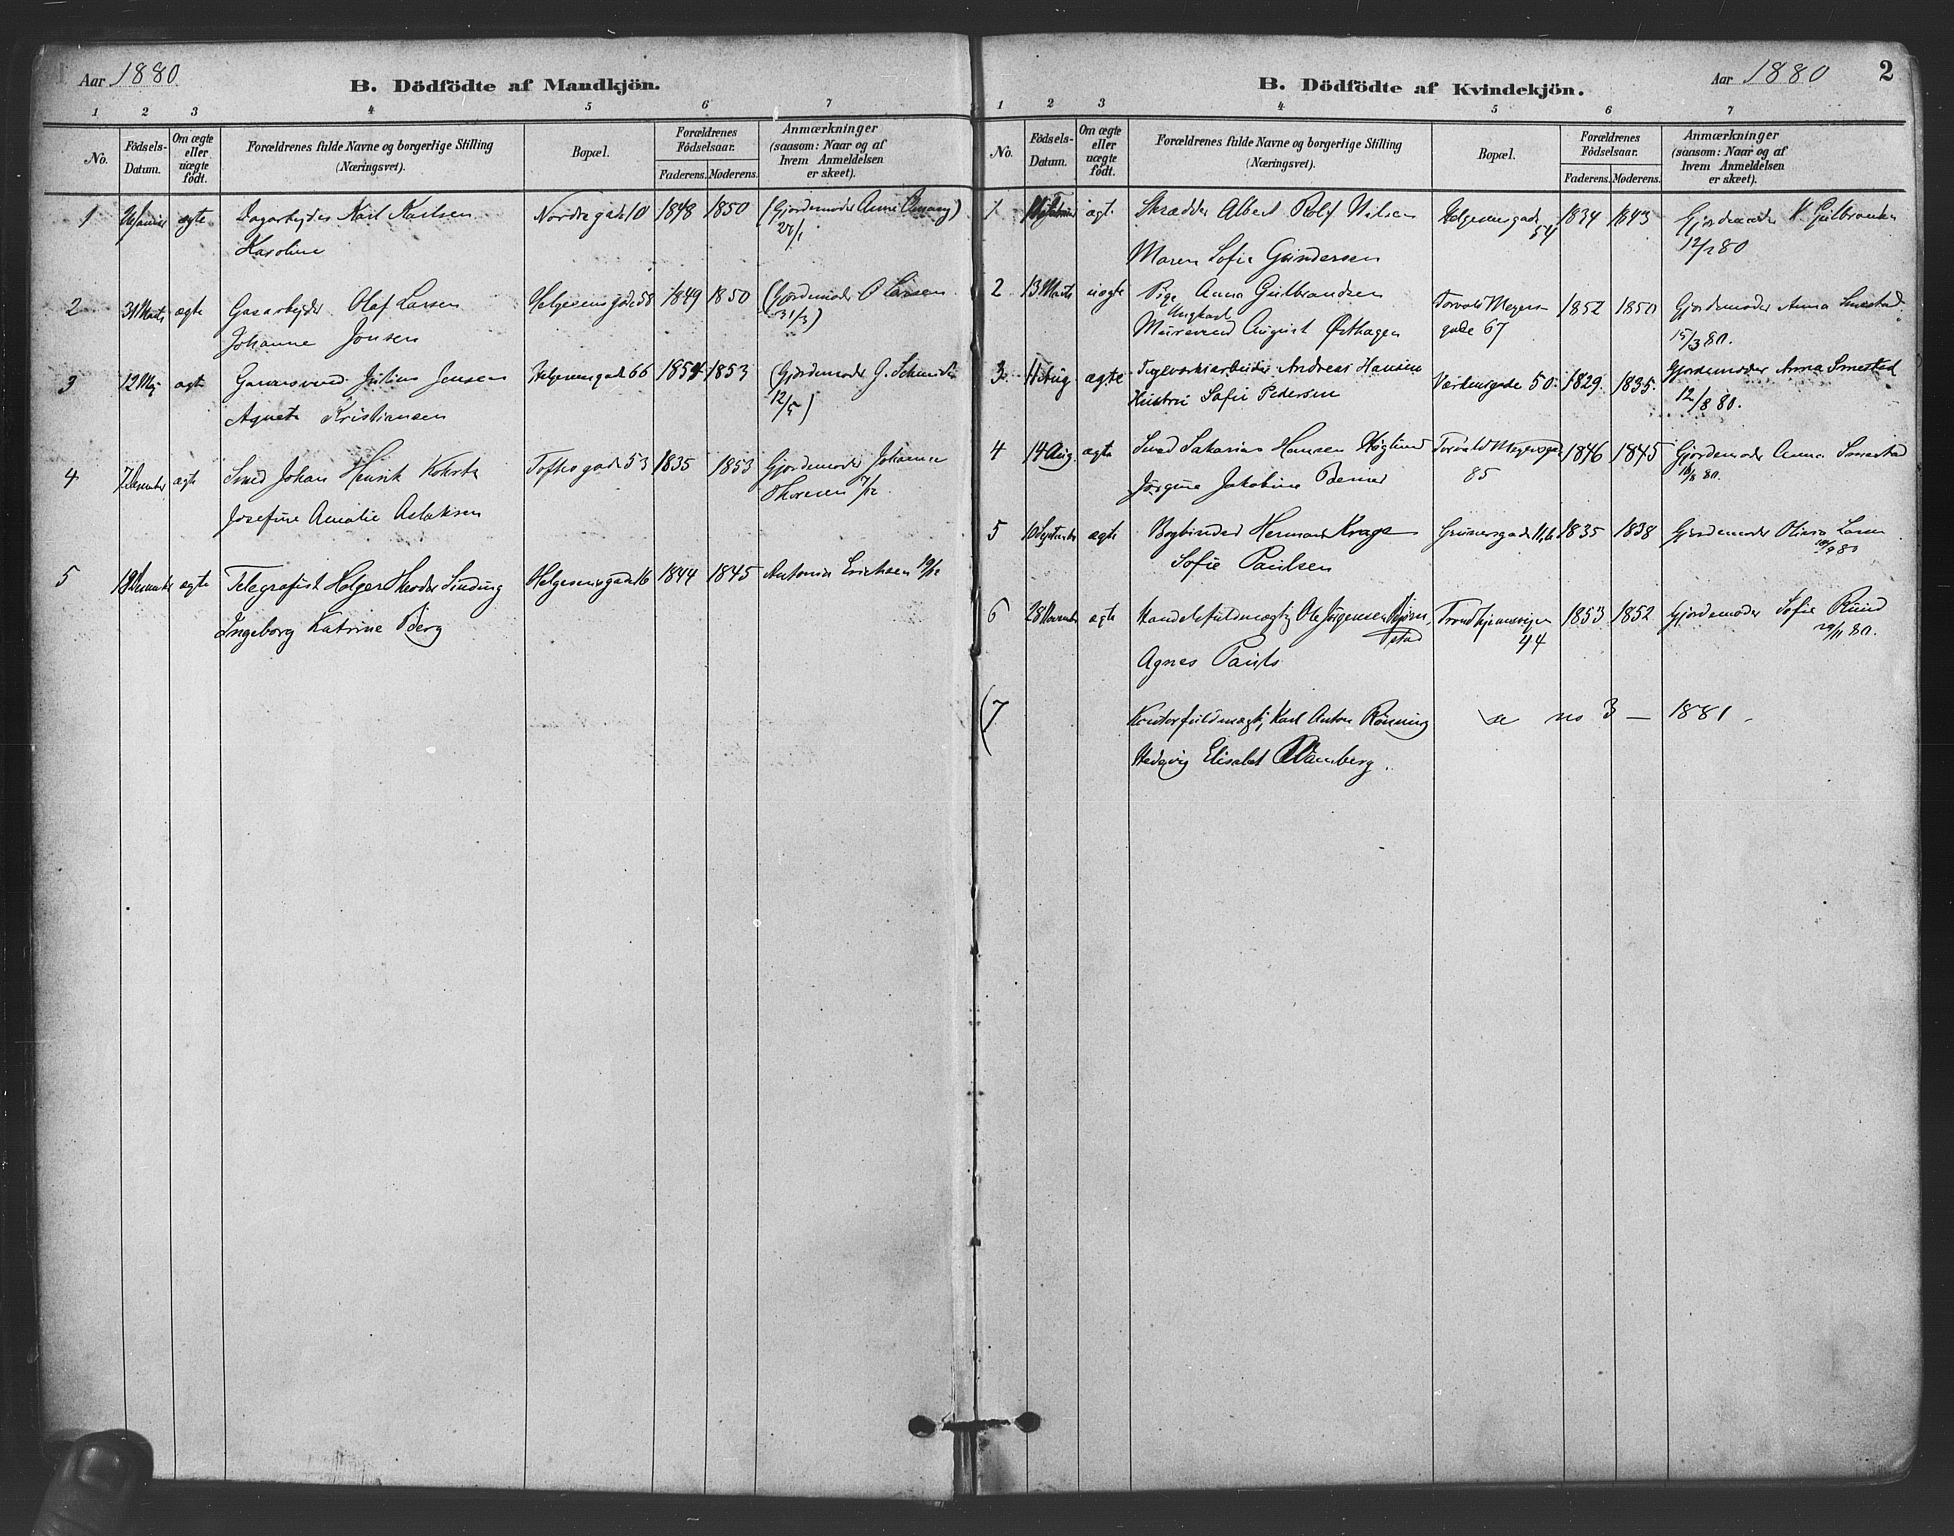 Aar 1880
B. Dödfödte af Mandkjön.
1 2 3 4 5 6 7
No. Födsels-Datum. Om ægte eller uægte födt. Forældrenes fulde Navne og borgerlige Stilling (Næringsvei). Bopæl. Forældrenes Födselsaar. Faderens. Moderens. Anmærkninger (saasom: Naar og af hvem Anmeldelsen er skeet).
1 Januar ægte Dagarbeyder Karl Karlsen Nordregade 10 1848 1850 (Gjordemoder Anne
Karoline 27/1
2 31 Marts ægte Gasarbeyder Olaf Larsen Helgesensgade 58 1849 1850 (Gjordemoder O Larsen
Johanne Jonsen 31/3)
3 12 Mai ægte Garversvend Julius Jensen Helgesensgade 66 1854 1853 (Gjordemoder G. Schmidt
Agnete Kristiansen 12/5)
4 7 Desember ægte Smed Johan Henrik Toftesgade 53 1835 1853 Gjordemoder Johanne
Josefine Amalie Aslaksen Thoresen 7/12.
5 Desember ægte Telegrafist Holger Theodor Sinding Helgesensgade 16 1844 1845 Antonia Erichsen 19/12
Ingeborg Katrine Berg
B. Dödfödte af Kvindekjön.
Aar 1880 2
1 2 3 4 5 6 7
No. Födsels-Datum. Om ægte eller uægte födt. Forældrenes fulde Navne og borgerlige Stilling (Næringsvei). Bopæl. Forældrenes Födselsaar. Faderens. Moderens. Anmærkninger (saasom: Naar og af hvem Anmeldelsen er skeet).
1 Februar ægt. Skrædder Albert Rolf Nilsen Helgesensgade 54 1834 1843 Gjordemoder K Gulbransen
Maren Sofie Gundersen 12/2 80
2 13 Marts uægte Pige Anna Gulbrandsen Torvald Meyers- 1852 1850 Gjordemoder Anna Smestad
Ungkarl
Muresvend August Østhagen gade 67 15/3 80.
3 11 Aug ægte Teglverksarbeider Andreas Hansen Verkensgade 50. 1829. 1835. Gjordemoder Anna Smestad
Hustru Sofie Pedersen 12/8 80.
4 14 Aug. ægte Smed Sakarias Hansen Høglund Torvald Meyersgd 1846 1845 Gjordemoder Anna Smestad
Jørgine Jakobine Berner 85 16/8 80.
5 10 September ægte Bogbinder Herman Krage Grünersgade 11,b 1835 1838 Gjordemoder Olivia Larsen
Sofie Paulsen 10/9 80
6 28 November ægte Handelsfuldmægtig Ole Jørgensen Bjørnstad Trondhjemsveien 44 1853 1852 Gjordemoder Sofie Rund
Agnes Pauls 29/11 80.
(7 Kontorfuldmægtig Karl Anton Rønning no 3 — 1881.
Hedevig Elisabet Blomberg.